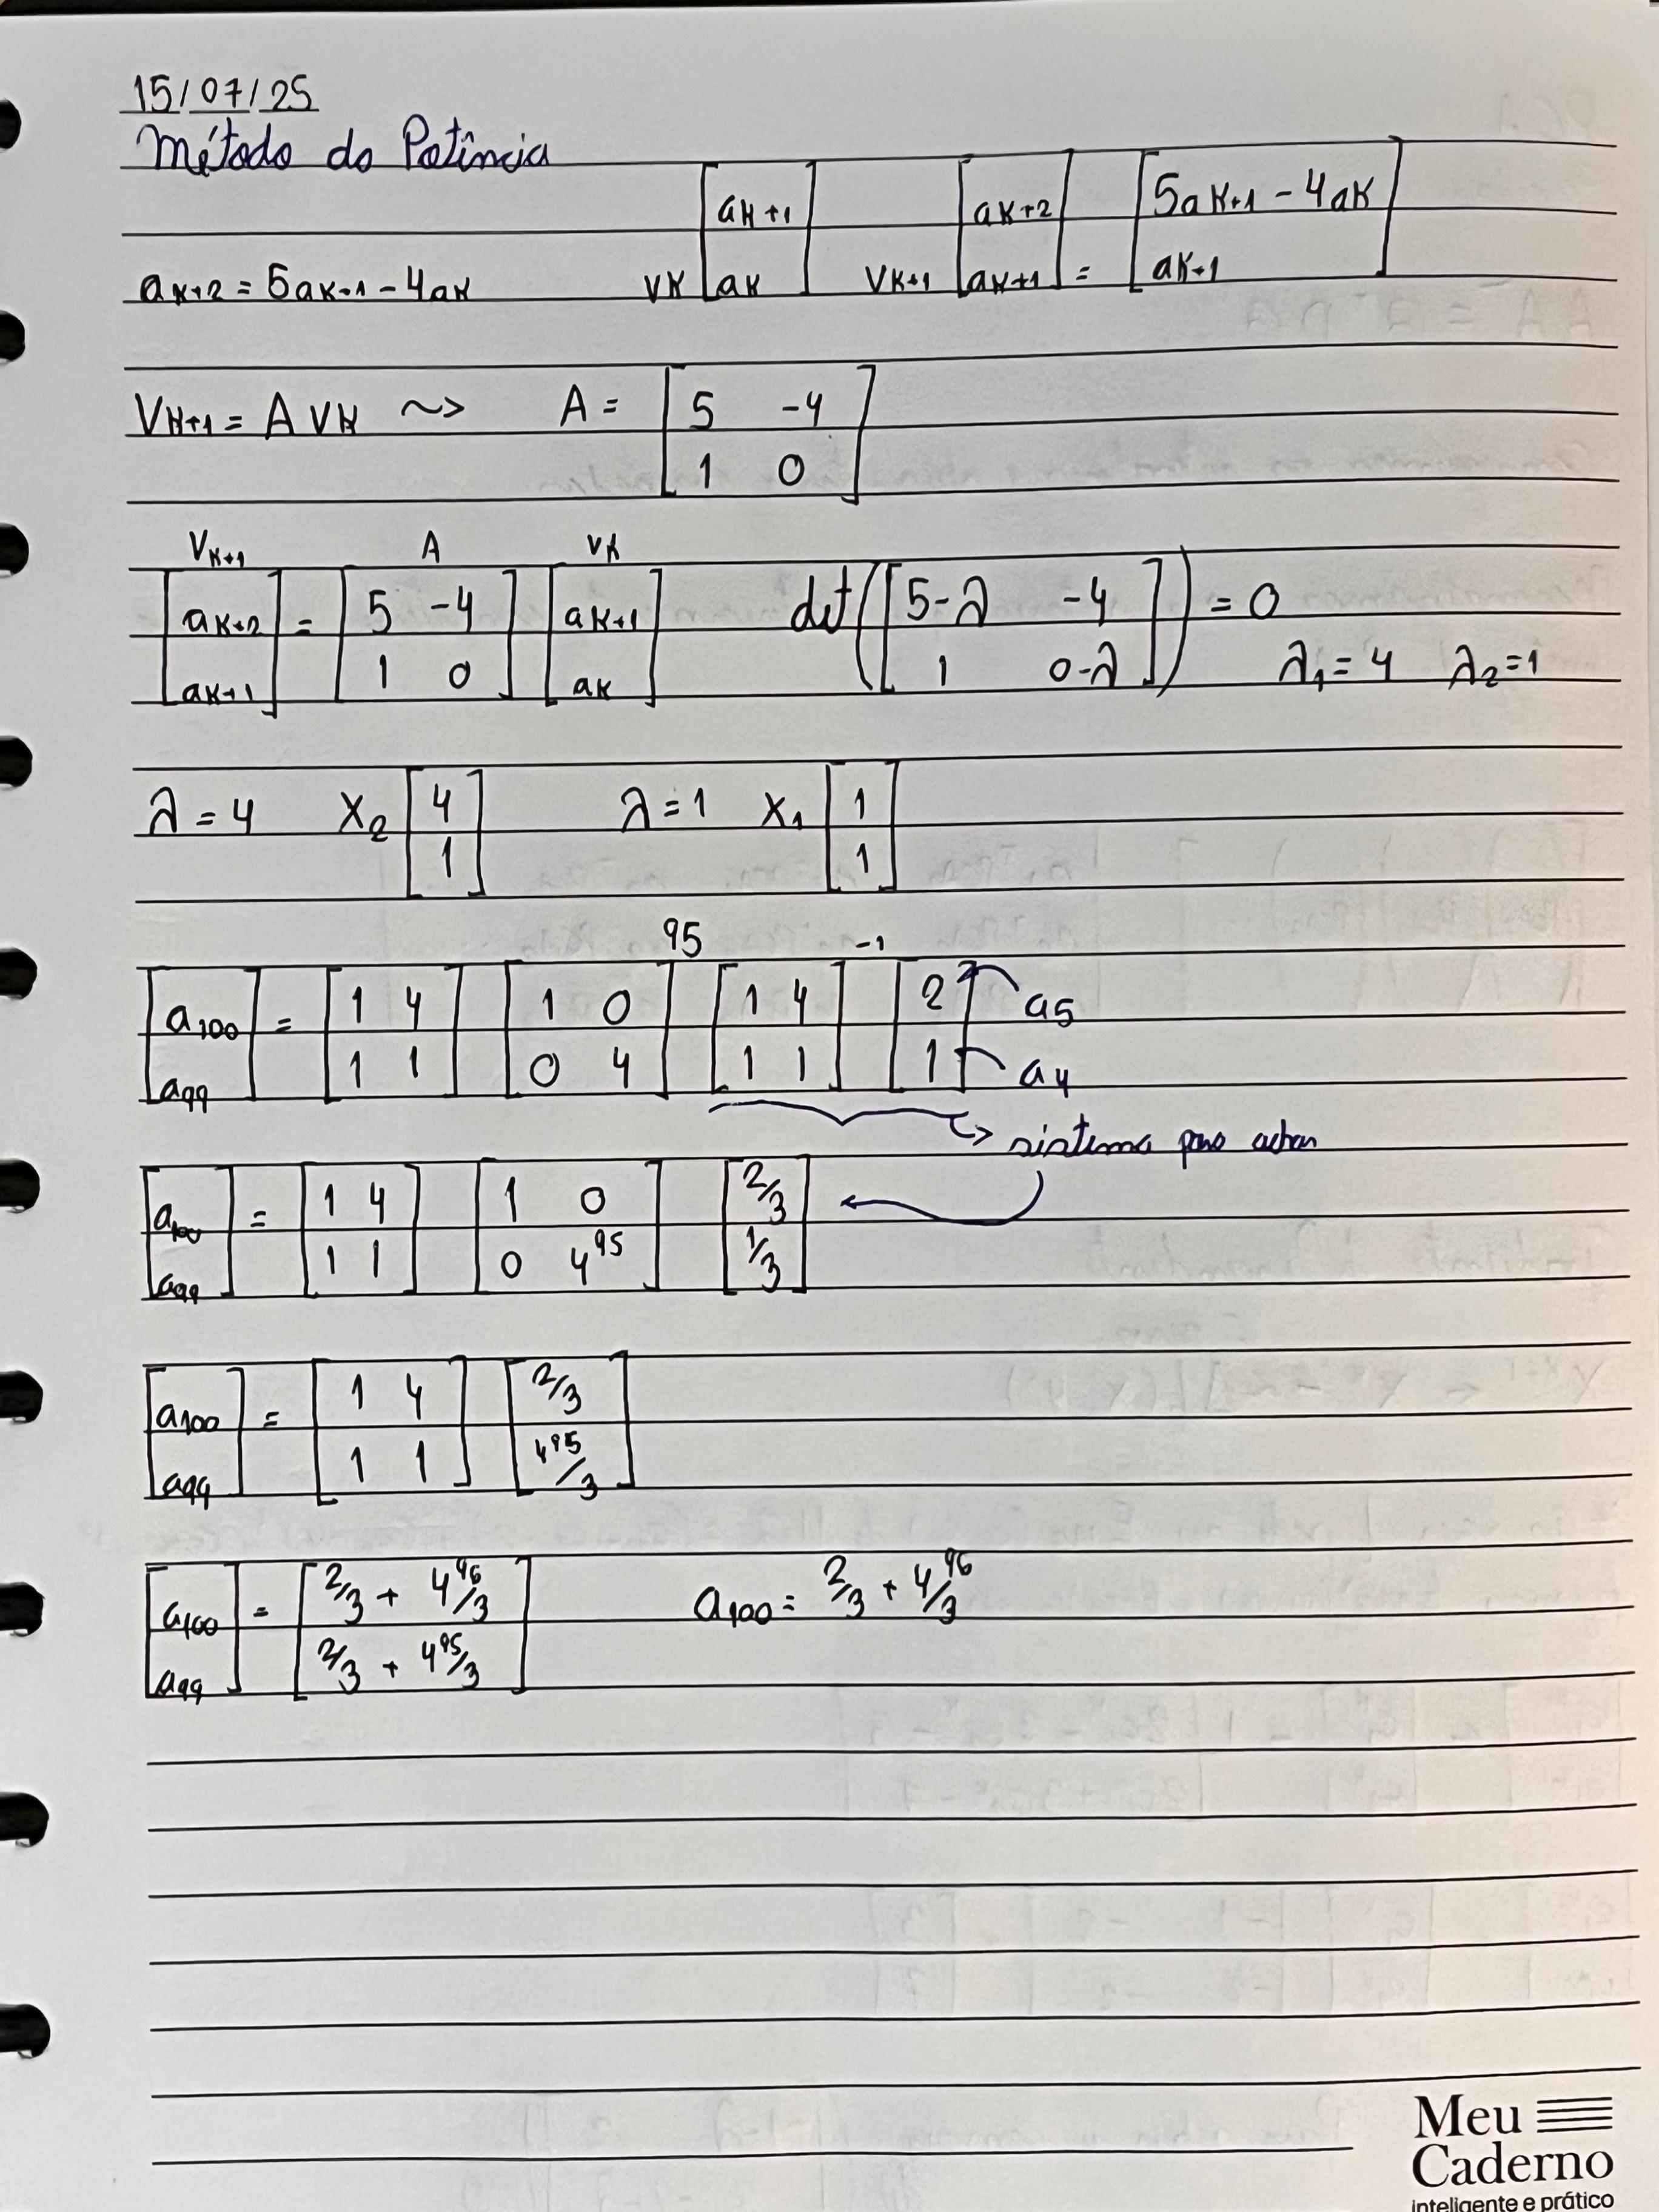 15/07/25
Método da Potência
aK+2 = 5aK+1 - 4aK   vK [aK+1 ; aK]   vK+1 [aK+2 ; aK+1] = [5aK+1 - 4aK ; aK+1]
VK+1 = A VK ~> A = [5 -4 ; 1 0]
VK+1   A   VK
[aK+2 ; aK+1] = [5 -4 ; 1 0] [aK+1 ; aK]   det([5-λ -4 ; 1 0-λ]) = 0   λ1=4   λ2=1
λ = 4   X2 [4 ; 1]   λ = 1   X1 [1 ; 1]
[a100 ; a99] = [1 4 ; 1 1] [1 0 ; 0 4]^95 [1 4 ; 1 1]^-1 [2 ; 1]   a5   a4
sistema para achar
[a100 ; a99] = [1 4 ; 1 1] [1 0 ; 0 4^95] [2/3 ; 1/3]
[a100 ; a99] = [1 4 ; 1 1] [2/3 ; 4^95/3]
[a100 ; a99] = [2/3 + 4^96/3 ; 2/3 + 4^95/3]   a100 = 2/3 + 4^96/3
Meu
Caderno
inteligente e prático